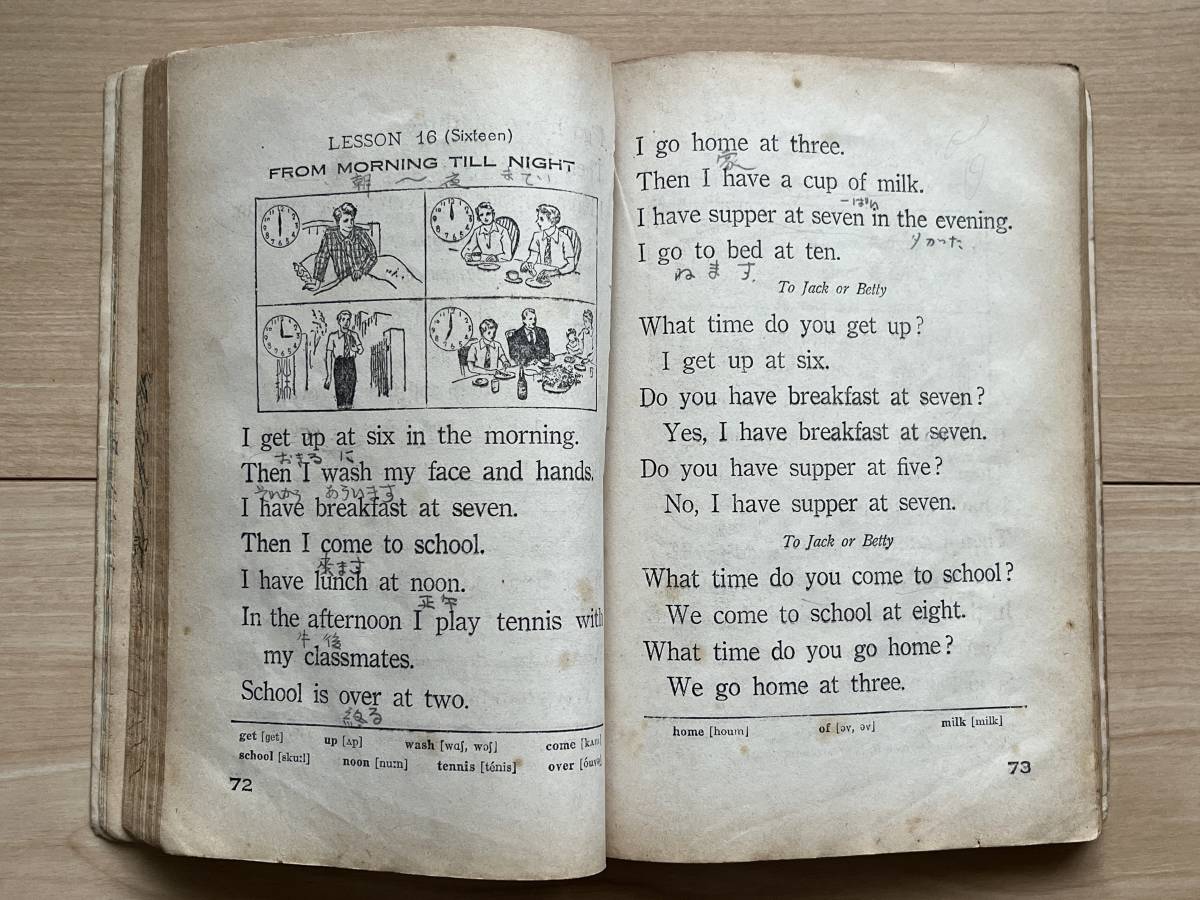 LESSON 16 (Sixteen)
FROM MORNING TILL NIGHT
朝 〜 夜 まで
I get up at six in the morning.
おきる に
Then I wash my face and hands.
それから あらいます
I have breakfast at seven.
Then I come to school.
来ます
I have lunch at noon.
正午
In the afternoon I play tennis with
午後
my classmates.
School is over at two.
終る
get [get] up [ʌp] wash [wɑʃ, wɔʃ] come [kʌm]
school [sku:l] noon [nu:n] tennis [ténis] over [óuvə]
72
I go home at three.
家へ
Then I have a cup of milk.
I have supper at seven in the evening.
夕がた
I go to bed at ten.
ねます
To Jack or Betty
What time do you get up?
I get up at six.
Do you have breakfast at seven?
Yes, I have breakfast at seven.
Do you have supper at five?
No, I have supper at seven.
To Jack or Betty
What time do you come to school?
We come to school at eight.
What time do you go home?
We go home at three.
home [houm] of [əv, ɔv] milk [milk]
73